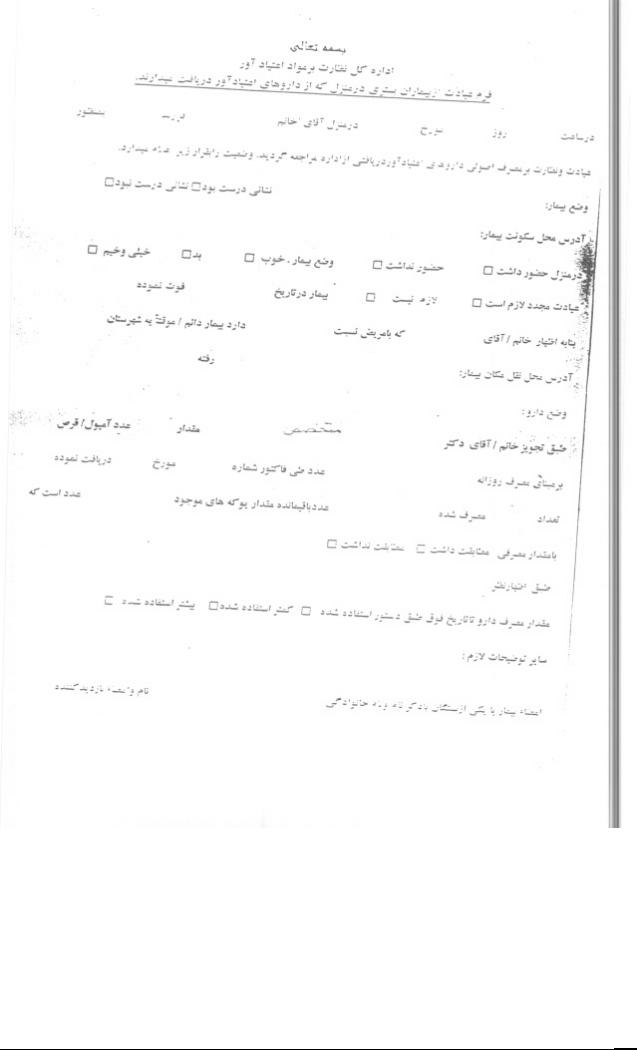 بسمه تعالی
اداره کل نظارت برمواد اعتیاد آور
فرم عیادت ازبیماران بستری درمنزل که از داروهای اعتیادآور دریافت میدارند.
درساعت روز مورخ درمنزل آقای /خانم بمنظور
عیادت ونظارت برمصرف اصولی داروهای اعتیادآوردریافتی ازاداره مراجعه گردید. وضعیت رابقرار زیر اعلام میدارد.
وضع بیمار: نشانی درست بود□ نشانی درست نبود□
آدرس محل سکونت بیمار:
درمنزل حضور داشت □ حضور نداشت □ وضع بیمار . خوب □ بد□ خیلی وخیم □
عیادت مجدد لازم است □ لازم نیست □ بیمار درتاریخ فوت نموده
بنابه اظهار خانم / آقای که بامریض نسبت دارد بیمار دائم / موقتاً به شهرستان
رفته
آدرس محل نقل مکان بیمار:
وضع دارو :
طبق تجویز خانم / آقای دکتر متخصص مقدار عدد آمپول/ قرص
برمبنای مصرف روزانه عدد طی فاکتور شماره مورخ دریافت نموده
تعداد مصرف شده عددباقیمانده مقدار پوکه های موجود عدد است که
بامقدار مصرفی مطابقت داشت □ مطابقت نداشت □
طبق اظهارنظر
مقدار مصرف دارو تاتاریخ فوق طبق دستور استفاده شده □ کمتر استفاده شده□ بیشتر استفاده شده □
سایر توضیحات لازم :
امضاء بیمار یا یکی ازبستگان باذکر نام ونام خانوادگی نام وامضاء بازدیدکننده